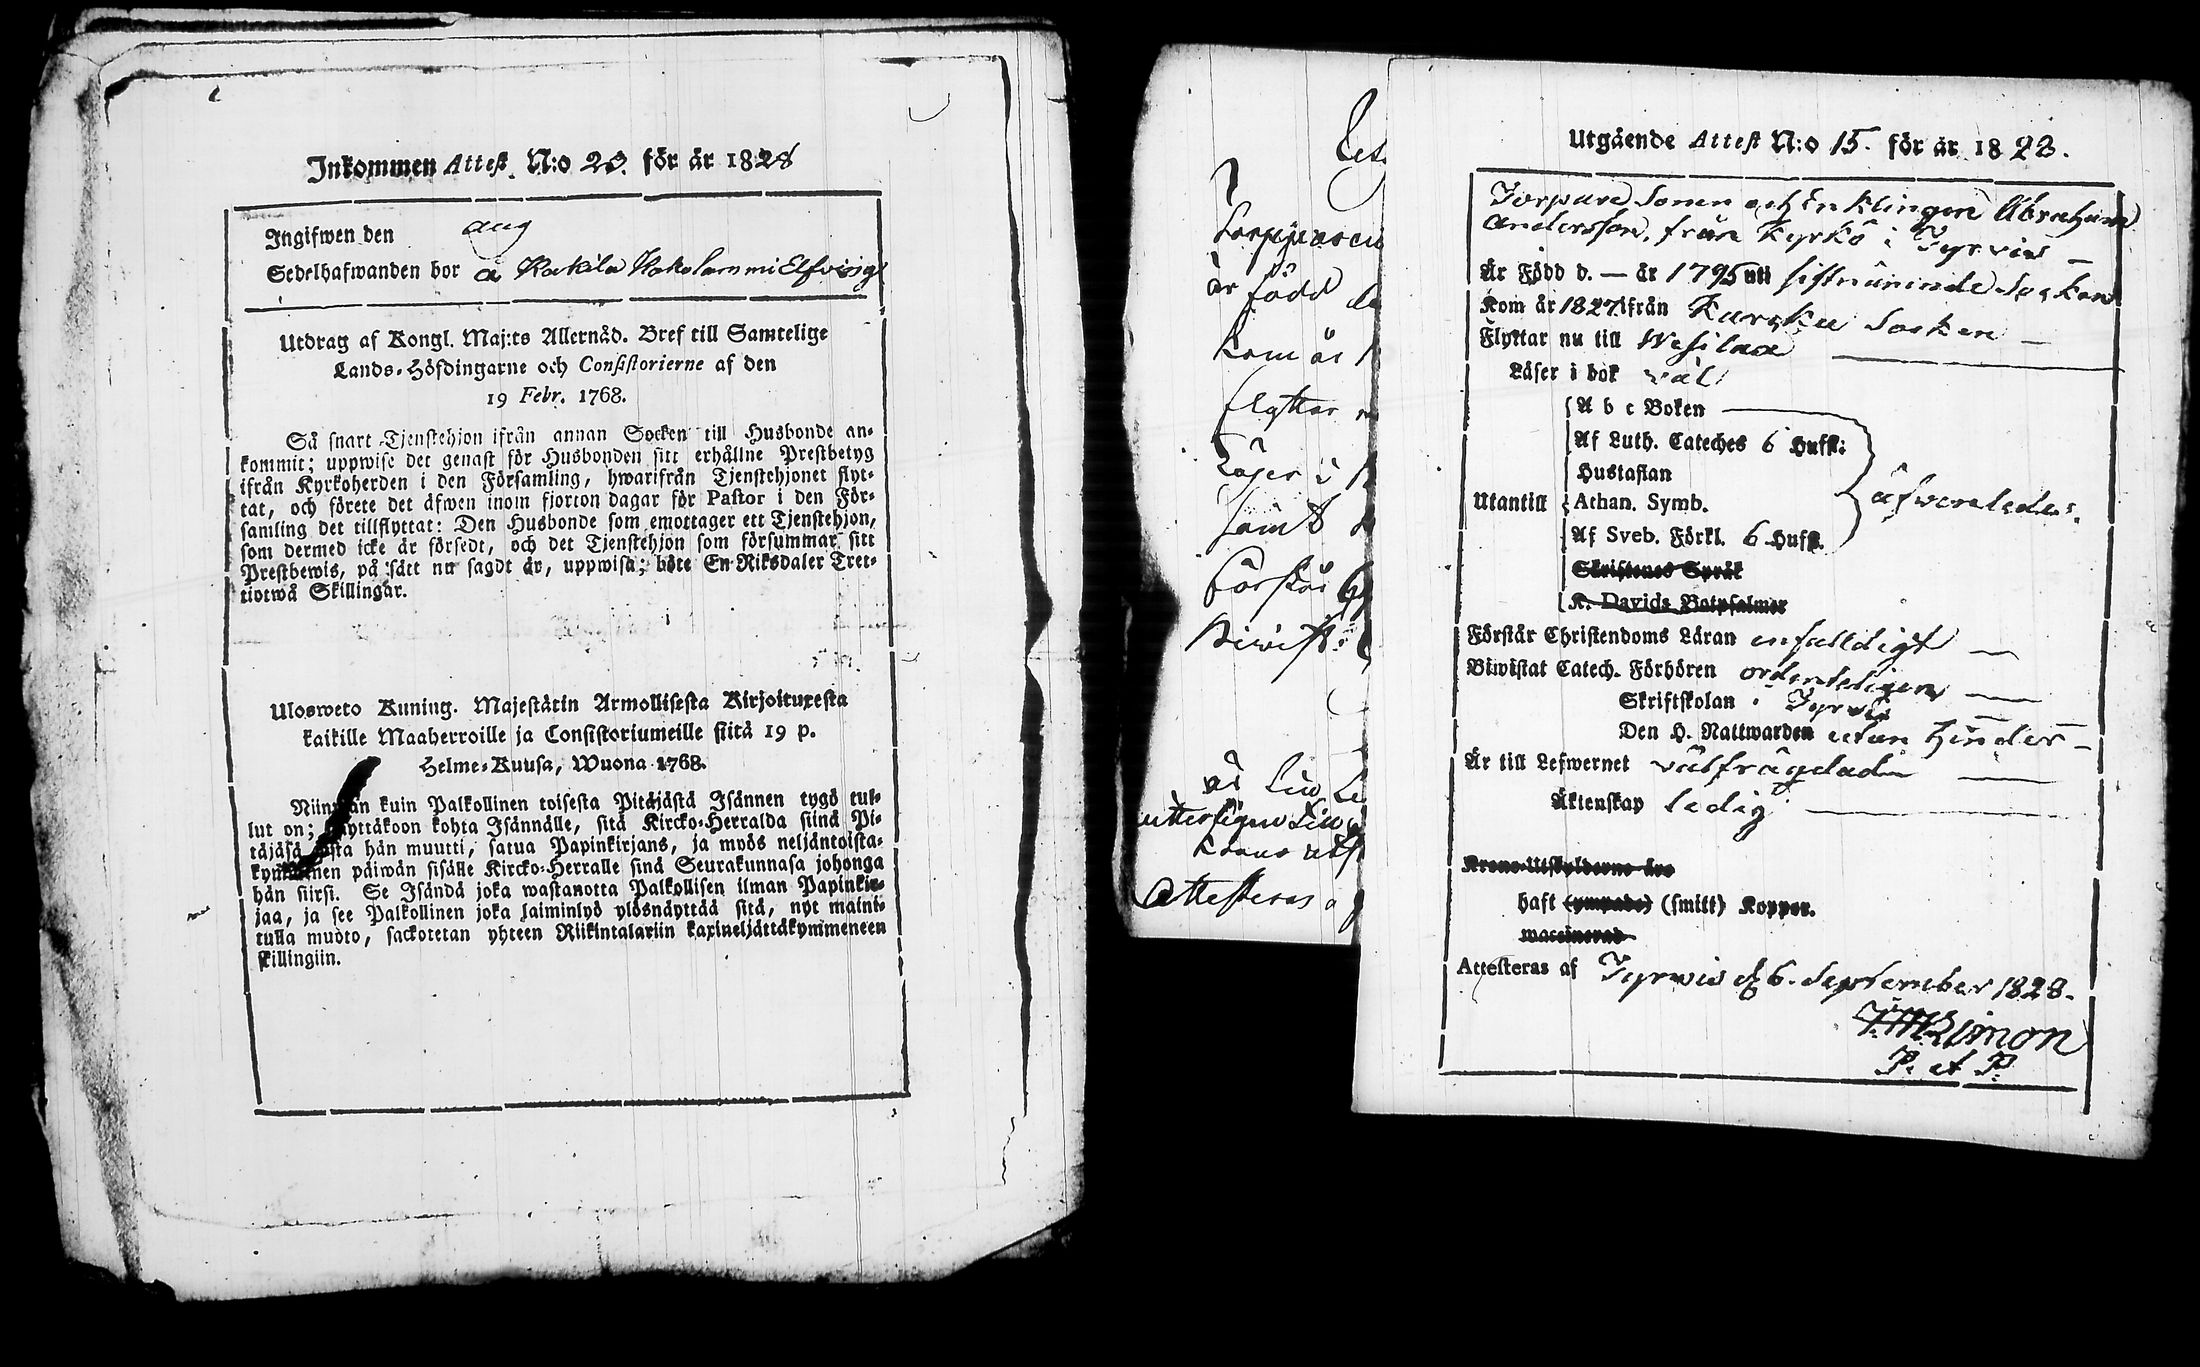 Inkommen Attest. N:o 20. för år 1828
Ingifwen den aug
Sedelhafwanden bor å Kakila Kokolammi Elfving
Utdrag af Kongl. Maj:ts Allernåd. Bref till Samtelige
Lands-Höfdingarne och Consistorierne af den
19 Febr. 1768.
Så snart Tjenstehjon ifrån annan Socken till Husbonde an-
kommit; uppwise det genast för Husbonden sitt erhållne Prestbetyg
ifrån Kyrkoherden i den Församling, hwarifrån Tjenstehjonet flyt-
tat, och förete det äfwen inom fjorton dagar för Pastor i den För-
samling det tillflyttat: Den Husbonde som emottager ett Tjenstehjon,
som dermed icke är försedt, och det Tjenstehjon som försummar sitt
Prestbewis, på sätt nu sagdt är, uppwisa; böte En Riksdaler Tret-
tiotwå Skillingar.
Ulosweto Kuning. Majestätin Armollisesta Kirjoituxesta
kaikille Maaherroille ja Consistoriumeille siitä 19 p.
Helme-Kuusa, Wuona 1768.
kuin Palkollinen toisesta Pitäjästä Isännen tygö tul-
lut on; näyttäkoon kohta Isännälle, sitä Kircko-Herralda siinä Pi-
täjäsä josta hän muutti, satua Papinkirjans, ja myös neljäntoista-
kymmenen päiwän sisälle Kircko-Herralle sinä Seurakunnasa johonga
hän siirsi. Se Isändä joka wastanotta Palkollisen ilman Papinkir-
jaa, ja see Palkollinen joka laiminlyö ylösnäyttää sitä, nyt maini-
tulla muoto, sackotetan yhteen Riikintalariin kaxineljättäkymmeneen
skillingiin.
är född
Kom år
flyttar
Läser i
samt
förstår
Biwist:
Attesteras
Utgående Attest N:o 15. för år 1828.
Torpare Sonen och Enklingen Abraham
Andersson, från Kyrkö i Tyrvis —
Är Född d. — år 1795 uti sistnämnde Socken
Kom år 1827 ifrån Kareku Socken —
Flyttar nu till Wesilax
Läser i bok väl
A b c Boken
Af Luth. Cateches 6 Hufst:
Hustaflan
Utantill Athan. Symb. äfwenledes.
Af Sveb. Förkl. 6 Hufst.
Skriftenes Språk
K. Davids Botpsalmer
Förstår Christendoms Läran enfaldigt —
Biwistat Catech. Förhören ordenteligen —
Skriftskolan i Tyrvis —
Den H. Nattwarden utan hinder —
Är till Lefwernet välfrägdad —
Äktenskap ledig
Krono-Utskylderne äro
haft (ympade) (smitt) Koppor.
waccinerad
Attesteras af Tyrvis d 6. September 1828.
Simon
P. et P.